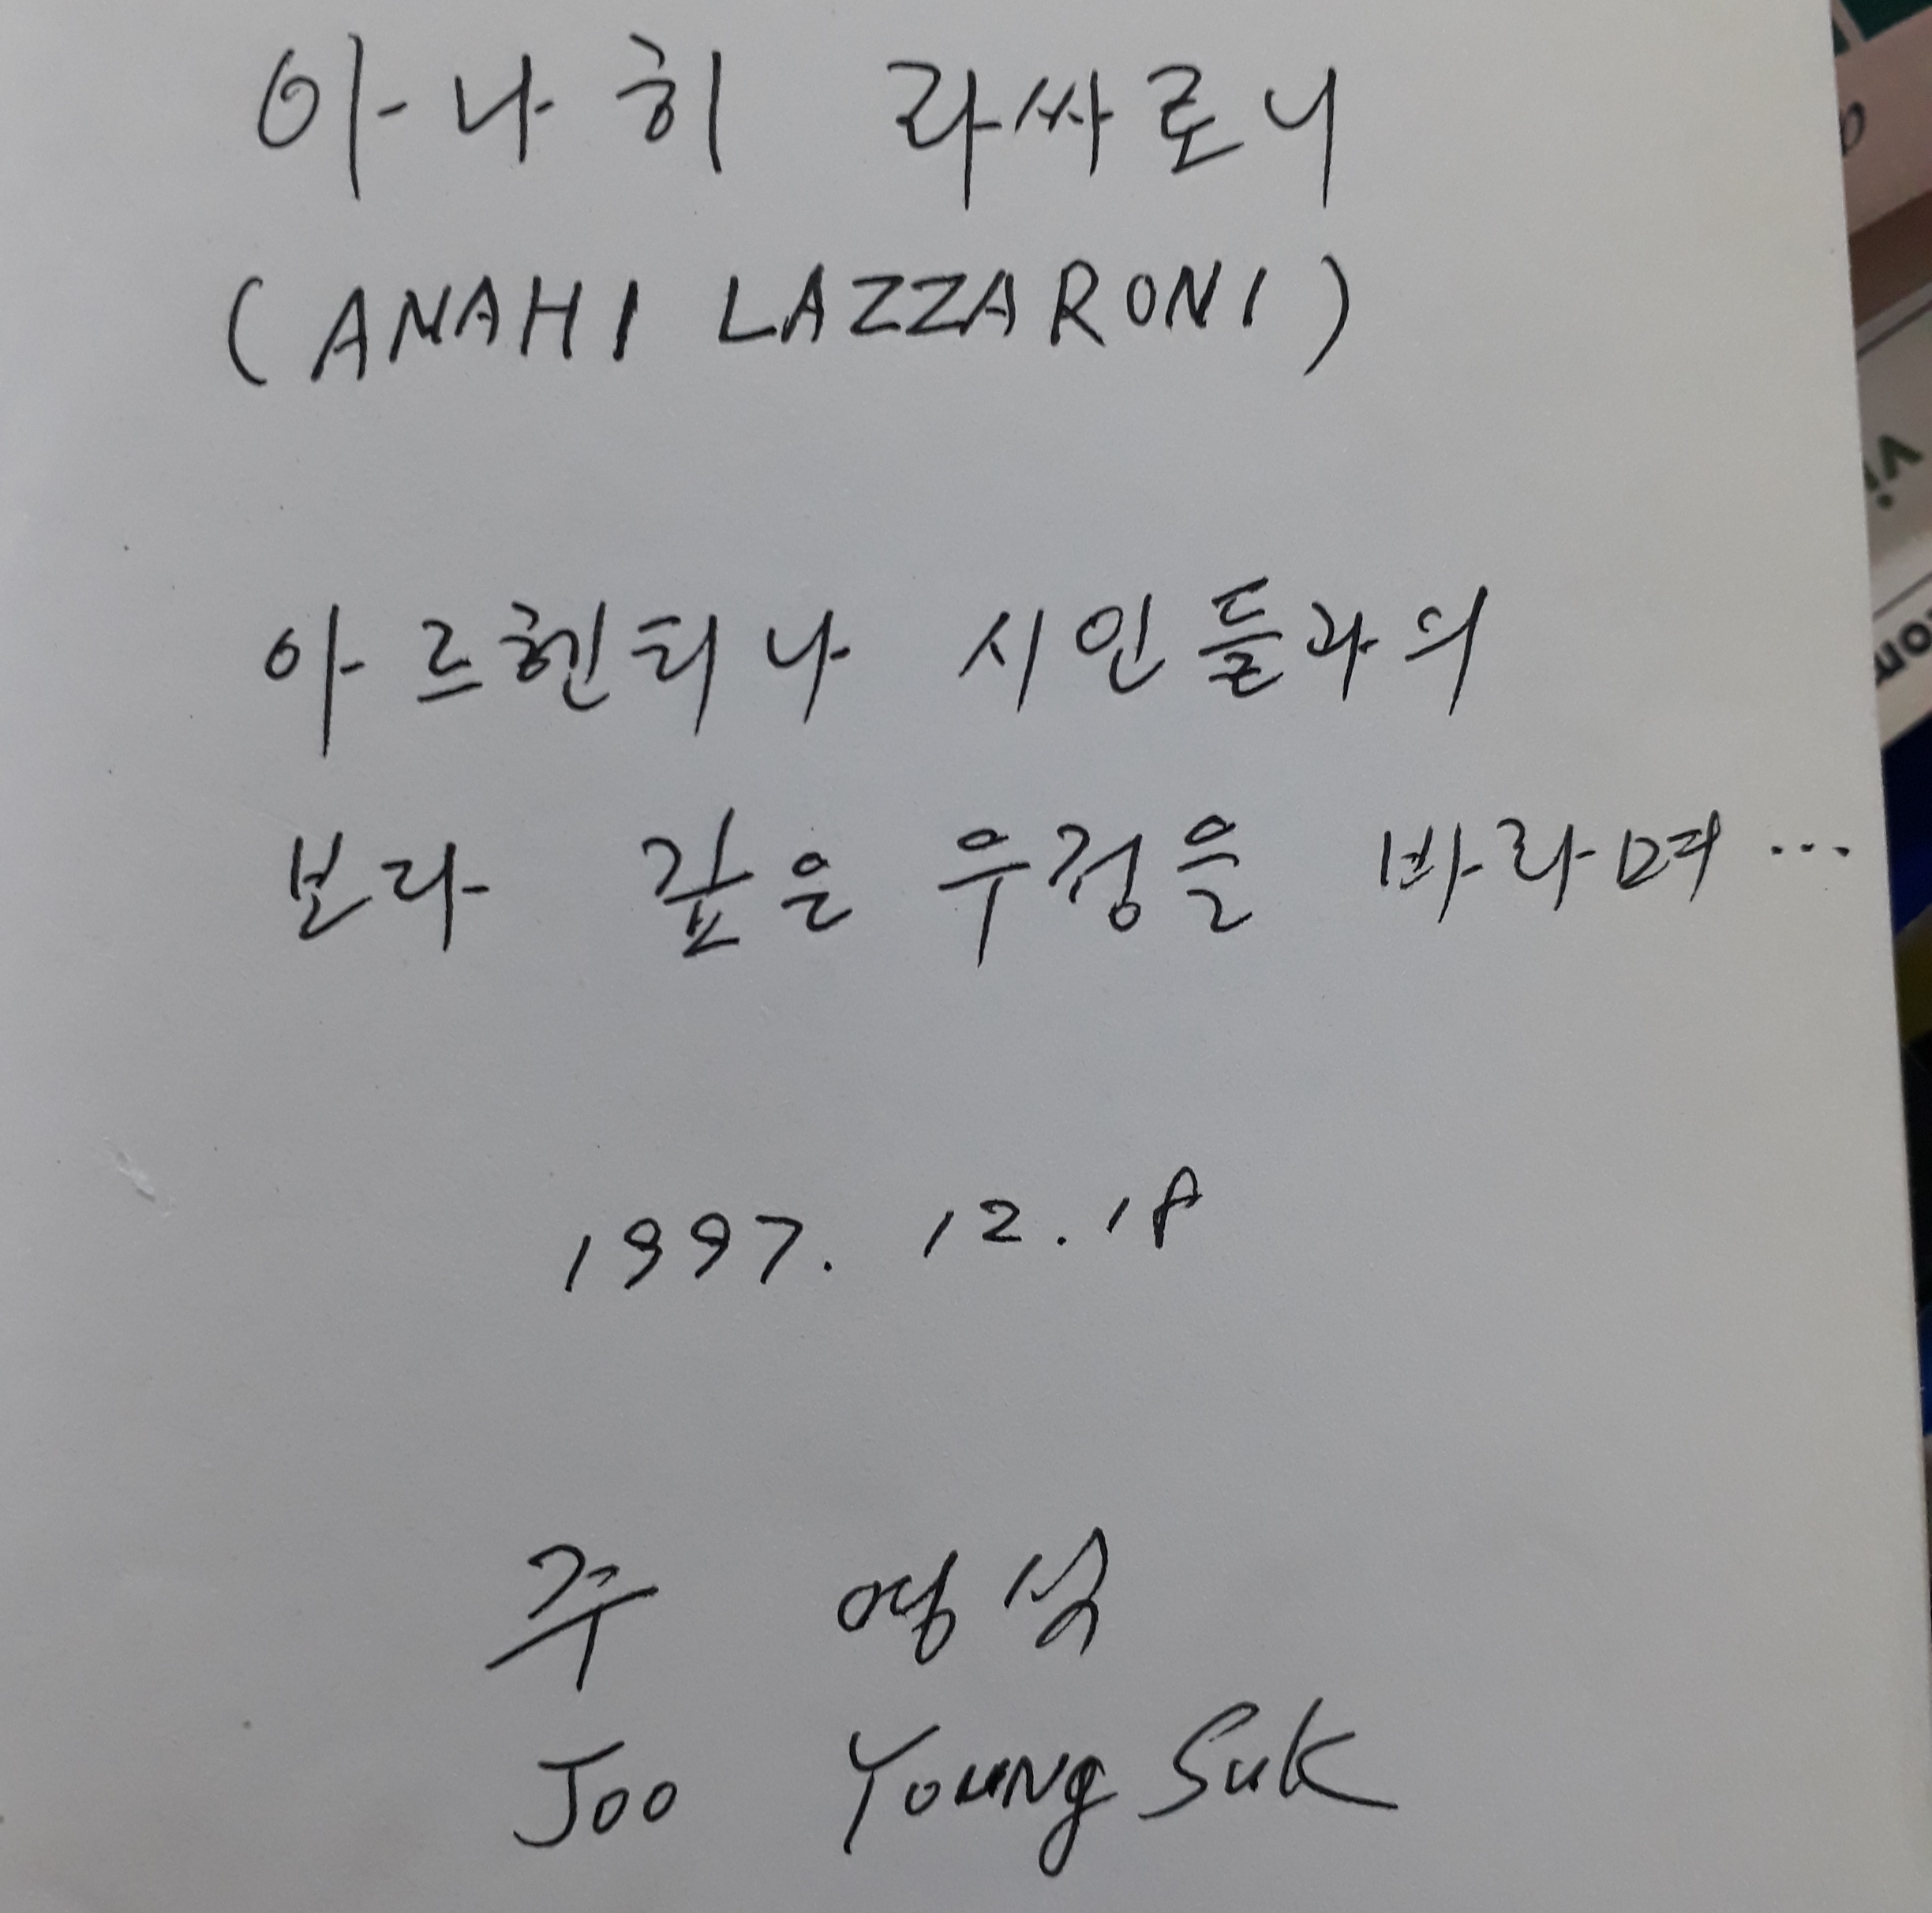 아나히 라싸로니
(ANAHI LAZZARONI)
아르헨티나 시인들과의
보다 깊은 우정을 바라며...
1997. 12. 18
주 영석
Joo Young Suk